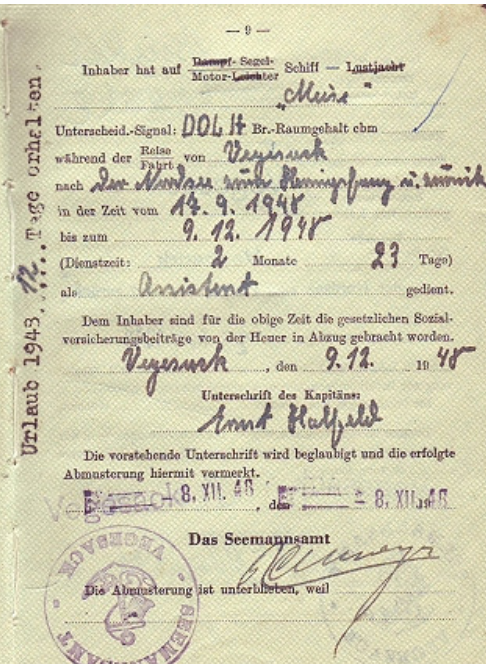 — 9 —
Inhaber hat auf Dampf- Segel- Schiff — Lustjacht
Motor-Leichter
„Meise"
Unterscheid.-Signal: DOLH Br.-Raumgehalt cbm
während der Reise von Vegesack
Fahrt
nach der Nordsee zum Heringsfang u. zurück
in der Zeit vom 17. 9. 1948
bis zum 9. 12. 1948
(Dienstzeit: 2 Monate 23 Tage)
als Assistent gedient.
Dem Inhaber sind für die obige Zeit die gesetzlichen Sozial-
versicherungsbeiträge von der Heuer in Abzug gebracht worden.
Vegesack, den 9.12. 1948
Unterschrift des Kapitäns:
Ernst
Die vorstehende Unterschrift wird beglaubigt und die erfolgte
Abmusterung hiermit vermerkt.
Vegesack - 8. XII. 48, den - 8. XII. 48
Das Seemannsamt
Die Abmusterung ist unterblieben, weil
SEEMANNSAMT
VEGESACK
Urlaub 1948. 12. Tage erhalten.